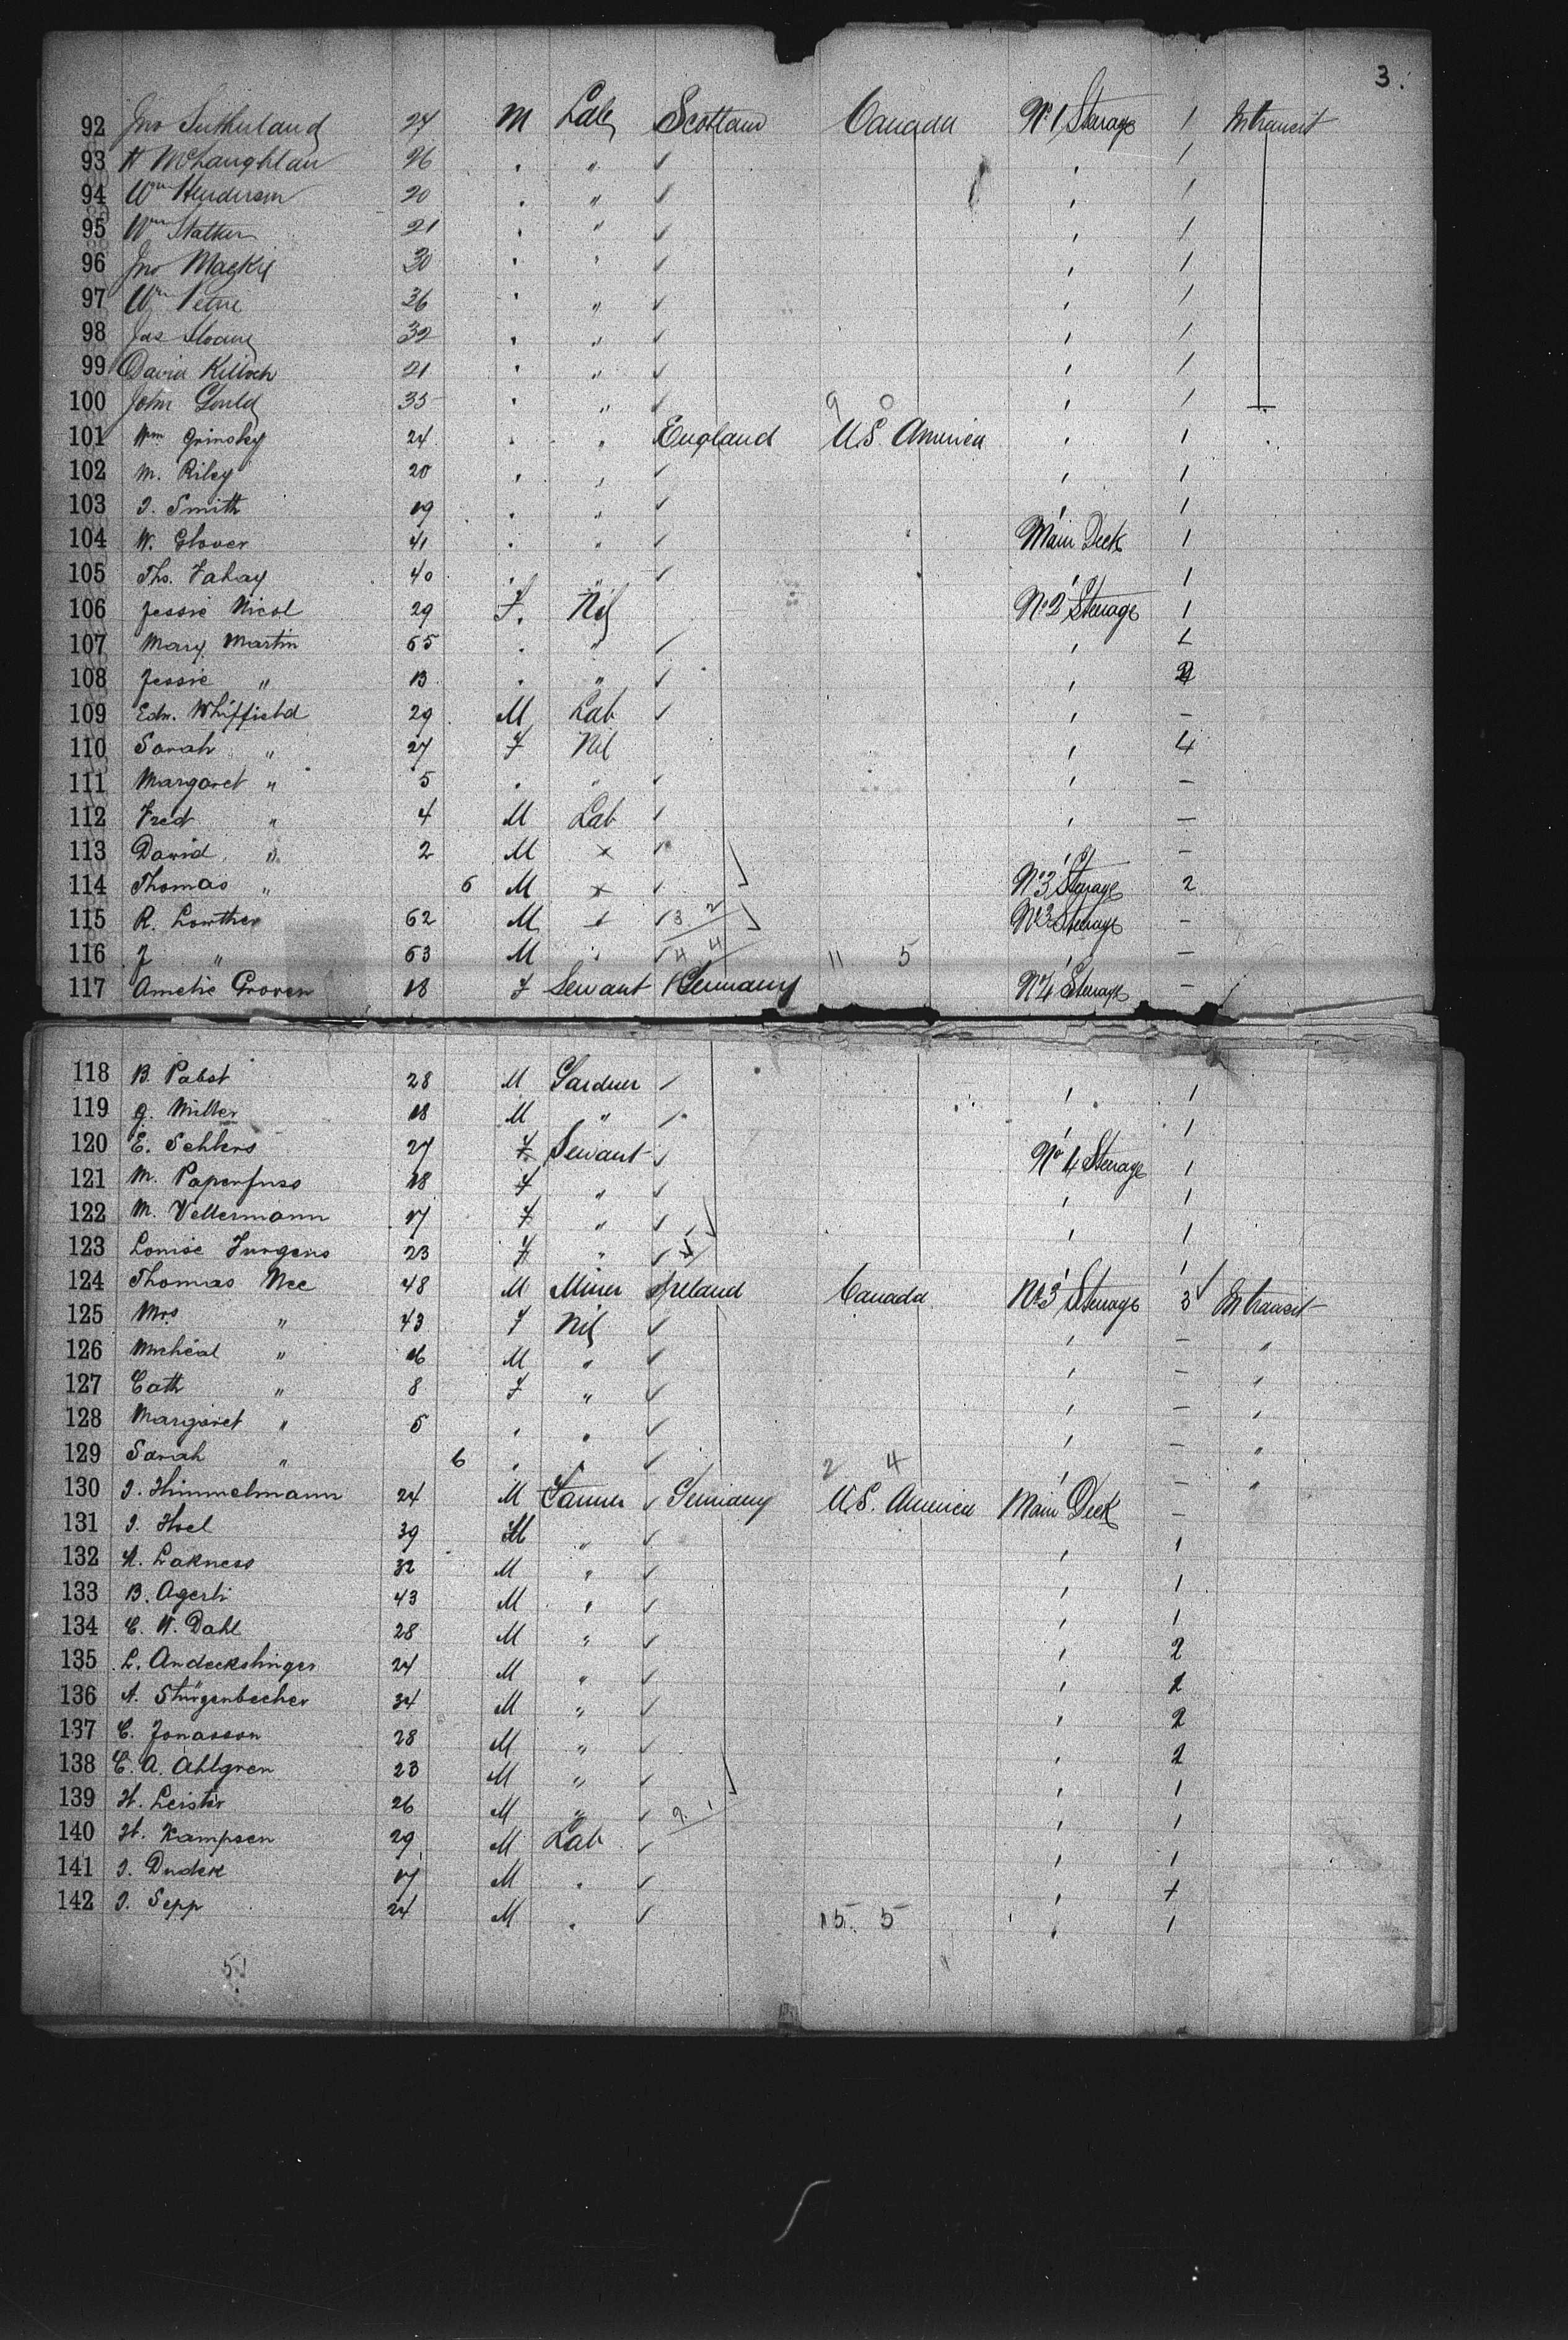 3.
92 Jno Sutherland 24 M Lab Scotland Canada No 1 Steerage 1 In transit
93 H McLaughlan 26 . " ✓ ' 1
94 Wm Henderson 20 . " ✓ ' 1
95 Wm Stalker 21 . " ✓ ' 1
96 Jno Mackie 30 . " ✓ ' 1
97 Wm Petrie 36 . " ✓ ' 1
98 Jas Sloane 32 . " ✓ ' 1
99 David Killoch 21 . " ✓ ' 1
100 John Gould 35 . " ✓ 9 0 ' 1
101 Wm Grinsky 24 . " England U.S America ' 1
102 M. Riley 20 . " ✓ ' 1
103 J. Smith 19 . " ✓ ' 1
104 W. Glover 41 . " ✓ Main Deck 1
105 Ths. Fahay 40 . " ✓ ' 1
106 Jessie Nicol 29 F. Nil No 2 Steerage 1
107 Mary Martin 65 . " ✓ '
108 Jessie " 13 . " ✓ ' 2
109 Edn. Whiffield 29 M Lab ✓ ' -
110 Sarah " 27 F Nil ' 4
111 Margaret " 5 . " ✓ ' -
112 Fred " 4 M Lab ✓ ' -
113 David " 2 M × ✓ ' -
114 Thomas " 6 M × ✓ No 3 Steerage 2
115 R. Lowther 62 M × ✓ 3 2 No 3 Steerage -
116 J " 63 M . ✓ 4 4 11 5 ' -
117 Amelie Groven 18 F Servant Germany No 4 Steerage -
118 B. Pabst 28 M Gardner ✓ ' 1
119 G. Miller 18 M " ✓ ' 1
120 E. Sehlers 27 F Servant ✓ No 4 Steerage 1
121 M. Paperfuss 18 F " ✓ ' 1
122 M. Vellermann 17 F " ✓ ' 1
123 Louise Jurgens 23 F " ✓ ' 1
124 Thomas Nee 48 M Miner Ireland Canada No 3 Steerage 3 In transit
125 Mrs " 43 F Nil ✓ ' - "
126 Micheal " 16 M " ✓ ' - "
127 Cath " 8 F " ✓ ' - "
128 Margaret " 5 . " ✓ ' - "
129 Sarah " 6 . " ✓ 2 4 ' - "
130 J. Himmelmann 24 M Farmer ✓ Germany U.S. America Main Deck -
131 J. Hoel 39 M " ✓ ' 1
132 A. Lakness 32 M " ✓ ' 1
133 B. Agerli 43 M " ✓ ' 1
134 C. W. Dahl 28 M " ✓ ' 2
135 L. Andeckslinger 24 M " ✓ ' 2
136 A. Stürgenbecher 34 M " ✓ ' 2
137 C. Jonasson 28 M " ✓ ' 2
138 C. A. Ahlgren 23 M " ✓ ' 1
139 H. Leister 26 M " ✓ 9 1 ' 1
140 H. Kampsen 29 M Lab ✓ ' 1
141 J. Dudek 17 M . ✓ '
142 J. Sepp 24 M . ✓ 15. 5 ' 1
51